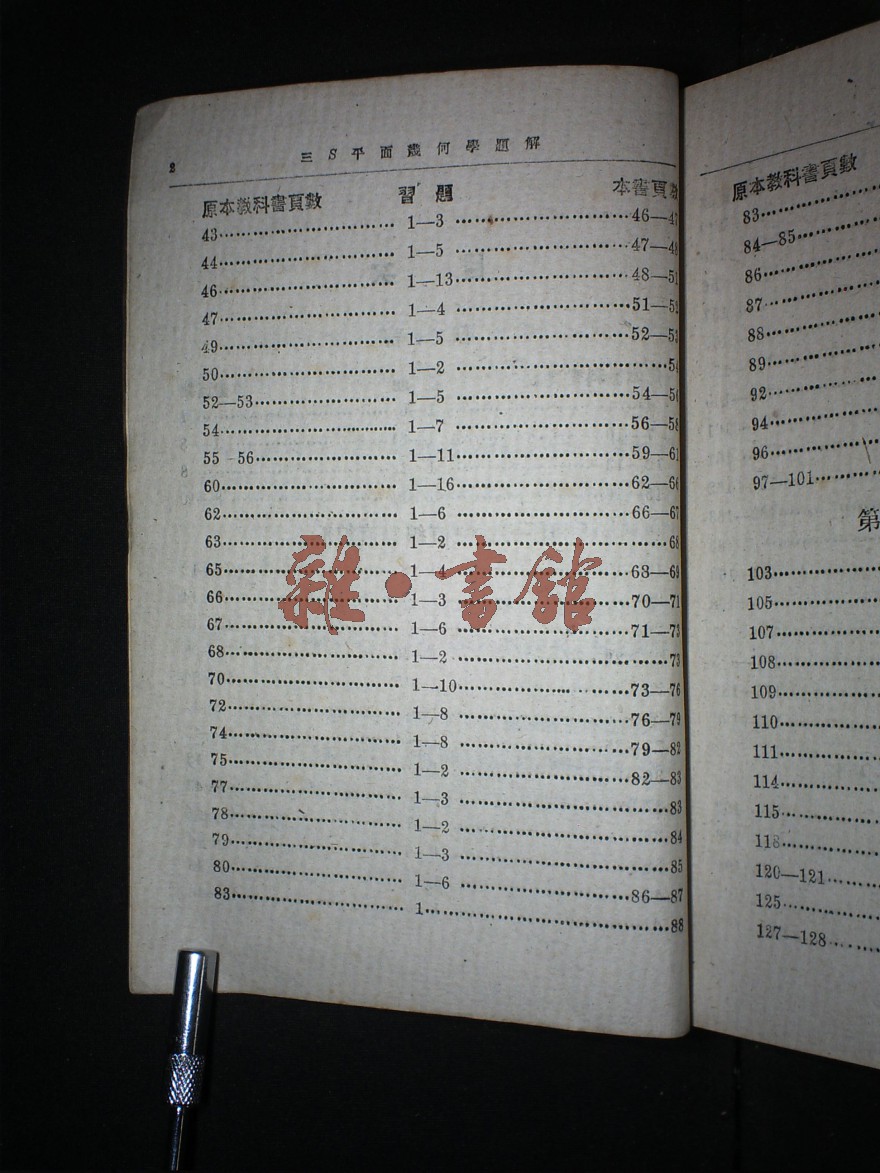 2 三S平面幾何學題解
原本教科書頁數 習題 本書頁數
43 1—3 46—47
44 1—5 47—48
46 1—13 48—51
47 1—4 51—52
49 1—5 52—53
50 1—2 54
52—53 1—5 54—56
54 1—7 56—58
55-56 1—11 59—61
60 1—16 62—66
62 1—6 66—67
63 1—2 68
65 1—4 68—69
66 1—3 70—71
67 1—6 71—73
68 1—2 73
70 1—10 73—76
72 1—8 76—79
74 1—8 79—82
75 1—2 82—83
77 1—3 83
78 1—2 84
79 1—3 85
80 1—6 86—87
83 1 88
雜·書館
原本教科書頁數
83
84—85
86
87
88
89
92
94
96
97—101
第
103
105
107
108
109
110
111
114
115
118
120—121
125
127—128